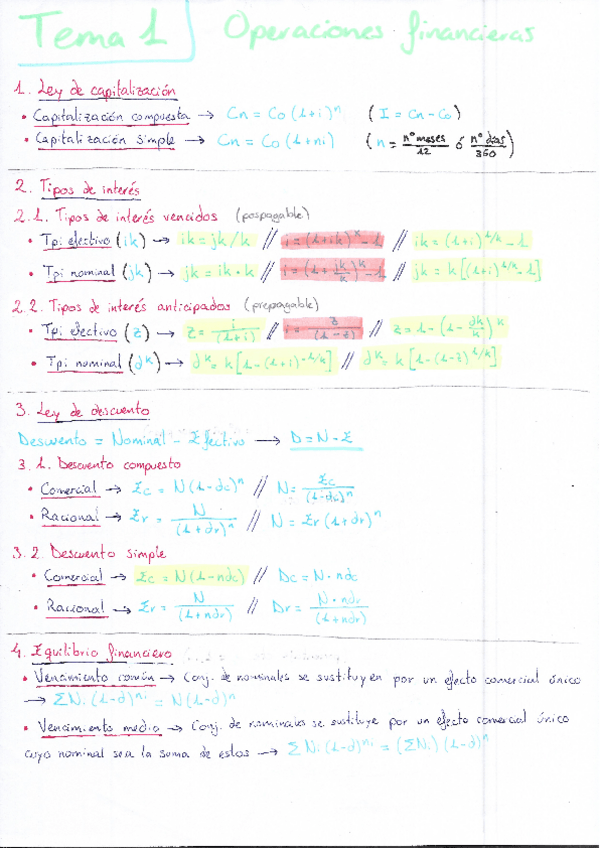 Tema 1 Operaciones financieras
1. Ley de capitalización
• Capitalización compuesta → Cn = Co (1+i)^n (I = Cn - Co)
• Capitalización simple → Cn = Co (1+ni) (n = nº meses/12 ó nº días/360)
2. Tipos de interés
2.1. Tipos de interés vencidos (pospagable)
• Tpi efectivo (ik) → ik = jk/k // i = (1+ik)^k - 1 // ik = (1+i)^1/k - 1
• Tpi nominal (jk) → jk = ik · k // i = (1 + jk/k)^k - 1 // jk = k [(1+i)^1/k - 1]
2.2. Tipos de interés anticipados (prepagable)
• Tpi efectivo (z) → z = i/(1+i) // i = z/(1-z) // z = 1 - (1 - ∂k/k)^k
• Tpi nominal (∂k) → ∂k = k [1 - (1+i)^-1/k] // ∂k = k [1 - (1-z)^1/k]
3. Ley de descuento
Descuento = Nominal - Efectivo → D = N - E
3.1. Descuento compuesto
• Comercial → Ec = N (1-dc)^n // N = Ec/(1-dc)^n
• Racional → Er = N/(1+dr)^n // N = Er (1+dr)^n
3.2. Descuento simple
• Comercial → Ec = N (1-ndc) // Dc = N · ndc
• Racional → Er = N/(1+ndr) // Dr = N · ndr/(1+ndr)
4. Equilibrio financiero
• Vencimiento común → Conj. de nominales se sustituyen por un efecto comercial único
→ ΣNi (1-d)^ni = N (1-d)^n
• Vencimiento medio → Conj. de nominales se sustituye por un efecto comercial único
cuyo nominal sea la suma de estos → ΣNi (1-d)^ni = (ΣNi) (1-d)^n